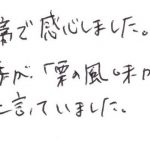 で感心しました。
が、「栗の風味が
言っていました。